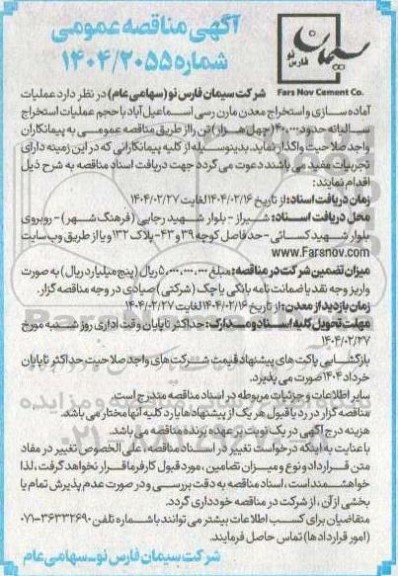 آگهی مناقصه عمومی
شماره ۱۴۰۴/۲۰۵۵
سیمان فارس نو
Fars Nov Cement Co.
شرکت سیمان فارس نو (سهامی عام) در نظر دارد عملیات
آماده سازی و استخراج معدن مارن رسی اسماعیل آباد با حجم عملیات استخراج
سالیانه حدود ۴۰،۰۰۰ (چهل هزار) تن را از طریق مناقصه عمومی به پیمانکاران
واجد صلاحیت واگذار نماید. بدینوسیله از کلیه پیمانکارانی که در این زمینه دارای
تجربیات مفید می باشند دعوت می گردد جهت دریافت اسناد مناقصه به شرح ذیل
اقدام نمایند:
زمان دریافت اسناد: از تاریخ ۱۴۰۴/۰۲/۱۶ لغایت ۱۴۰۴/۰۲/۲۷
محل دریافت اسناد: شیراز - بلوار شهید رجایی (فرهنگ شهر) - روبروی
بلوار شهید کسائی - حدفاصل کوچه ۳۹ و ۴۳ - پلاک ۱۳۲ و یا از طریق وب سایت
www.Farsnov.com
میزان تضمین شرکت در مناقصه: مبلغ ۵،۰۰۰،۰۰۰،۰۰۰ ریال (پنج میلیارد ریال) به صورت
واریز وجه نقد یا ضمانت نامه بانکی یا چک (شرکتی) صیادی در وجه مناقصه گزار.
زمان بازدید از معدن: از تاریخ ۱۴۰۴/۰۲/۱۶ لغایت ۱۴۰۴/۰۲/۲۷
مهلت تحویل کلیه اسناد و مدارک: حداکثر تا پایان وقت اداری روز شنبه مورخ
۱۴۰۴/۰۲/۲۷
بازگشایی پاکت های پیشنهاد قیمت شرکت های واجد صلاحیت حداکثر تا پایان
خرداد ۱۴۰۴ صورت می پذیرد.
سایر اطلاعات و جزئیات مربوطه در اسناد مناقصه مندرج است.
مناقصه گزار در رد یا قبول هر یک از پیشنهادها یا رد کلیه آنها مختار می باشد.
هزینه درج آگهی در یک نوبت بر عهده برنده مناقصه می باشد.
با عنایت به اینکه درخواست تغییر در اسناد مناقصه، علی الخصوص تغییر در مفاد
متن قرارداد و نوع و میزان تضامین، مورد قبول کارفرما قرار نخواهد گرفت، لذا
خواهشمند است، اسناد مناقصه به دقت بررسی و در صورت عدم پذیرش تمام یا
بخشی از آن، از شرکت در مناقصه خودداری گردد.
متقاضیان برای کسب اطلاعات بیشتر می توانند با شماره تلفن ۳۶۳۳۲۶۹۰-۰۷۱
(امور قراردادها) تماس حاصل فرمایند.
شرکت سیمان فارس نو - سهامی عام